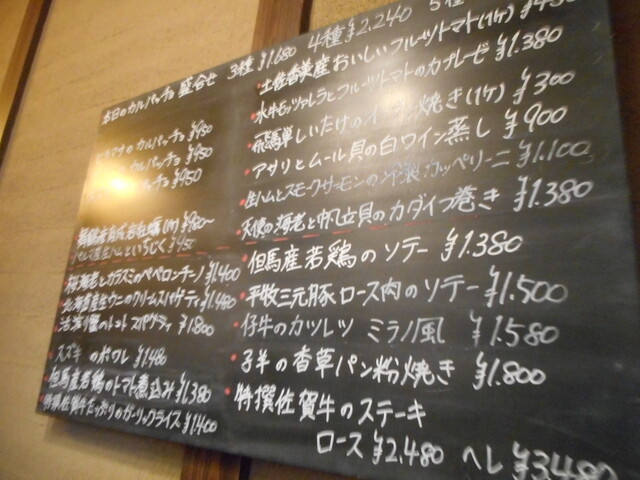 本日のカルパッチョ 盛合せ 3種 ¥1,680 4種 ¥2,240 5種
のカルパッチョ ¥950
カルパッチョ ¥950
カルパッチョ ¥950
¥980〜
パルマ産生ハムといちじく ¥945
桜海老とカラスミのペペロンチーノ ¥1,400
北海道産生ウニのクリームスパゲティ ¥1,480
トマトスパゲティ ¥1,800
スズキのポワレ ¥1,480
但馬産若鶏のトマト煮込み ¥1,380
特撰佐賀牛たっぷりのガーリックライス ¥1,400
土佐香美産おいしいフルーツトマト(1ケ)
水牛モッツァレラとフルーツトマトのカプレーゼ ¥1,380
飛騨産しいたけの焼き(1ケ) ¥300
アサリとムール貝の白ワイン蒸し ¥900
生ハムとスモークサーモンの冷製カッペリーニ ¥1,100
天使の海老と帆立貝のカダイフ巻き ¥1,380
但馬産若鶏のソテー ¥1,380
平牧三元豚ロース肉のソテー ¥1,500
仔牛のカツレツ ミラノ風 ¥1,580
子羊の香草パン粉焼き ¥1,800
特撰佐賀牛のステーキ
ロース ¥2,480 ヘレ ¥3,480